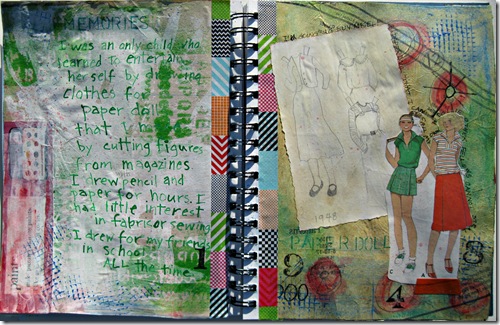 MEMORIES
I was an only child who
learned to entertain
herself by drawing
clothes for
paper dolls
that I made
by cutting figures
from magazines
I drew pencil and
paper for hours. I
had little interest
in fabric or sewing
I drew for my friends
in school
ALL the time
1
1948
PAPER DOLL
9
4